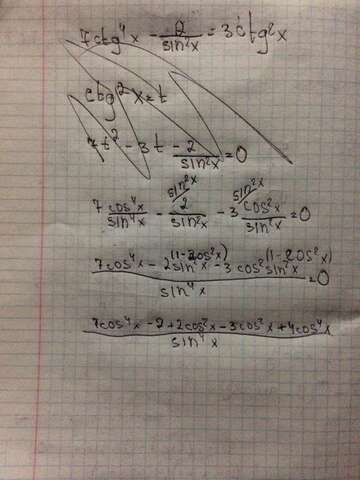 7ctg⁴x - 2/sin²x = 3ctg²x
ctg²x = t
7t² - 3t - 2/sin²x = 0
7 cos⁴x/sin⁴x - 2/sin²x (sin²x) - 3 cos²x/sin²x (sin²x) = 0
(7cos⁴x - 2sin²x (1-2cos²x) - 3cos²x sin²x (1-2cos²x))/sin⁴x = 0
(7cos⁴x - 2 + 2cos²x - 3cos²x + 4cos⁴x)/sin⁴x